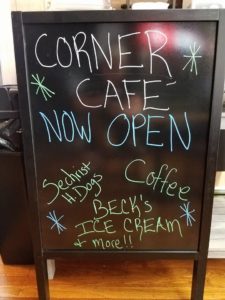 CORNER
CAFE
NOW OPEN
Sechrist
H. Dogs
Coffee
BECK's
ICE CREAM
+ more!!